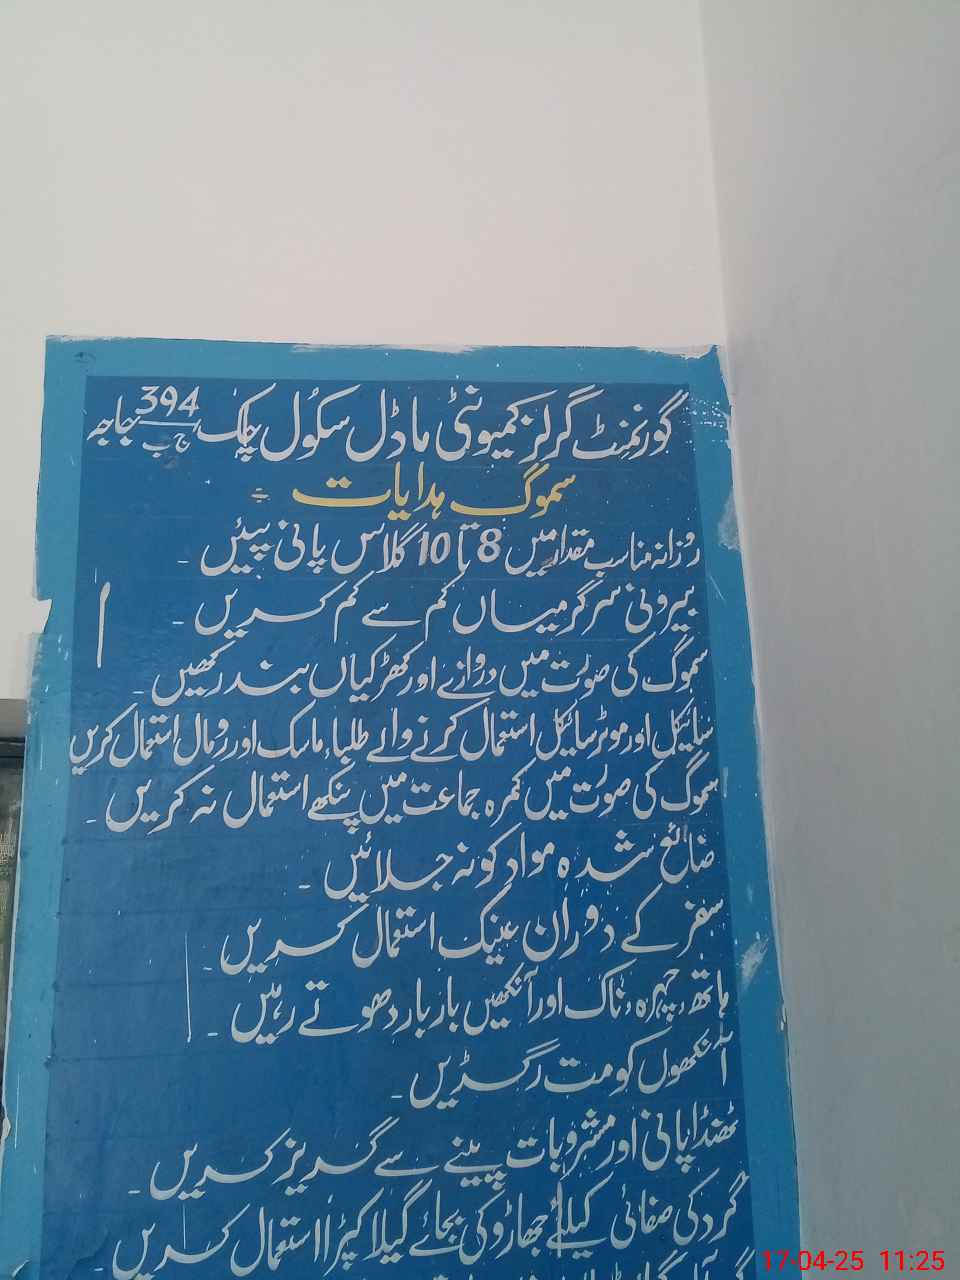 گورنمنٹ گرلز کمیونٹی ماڈل سکول چک 394 ج ب بجاجہ
سموگ ہدایات
روزانہ مناسب مقدار میں 8 تا 10 گلاس پانی پیئیں۔
بیرونی سرگرمیاں کم سے کم کریں۔
سموگ کی صورت میں دروازے اور کھڑکیاں بند رکھیں۔
سائیکل اور موٹر سائیکل استعمال کرنے والے طلباء ماسک اور رومال استعمال کریں
سموگ کی صورت میں کمرہ جماعت میں پنکھے استعمال نہ کریں۔
ضائع شدہ مواد کو نہ جلائیں۔
سفر کے دوران عینک استعمال کریں۔
ہاتھ، چہرہ، ناک اور آنکھیں بار بار دھوتے رہیں۔
آنکھوں کو مت رگڑیں۔
ٹھنڈا پانی اور مشروبات پینے سے گریز کریں۔
گرد کی صفائی کیلئے جھاڑو کی بجائے گیلا کپڑا استعمال کریں۔
17-04-25 11:25